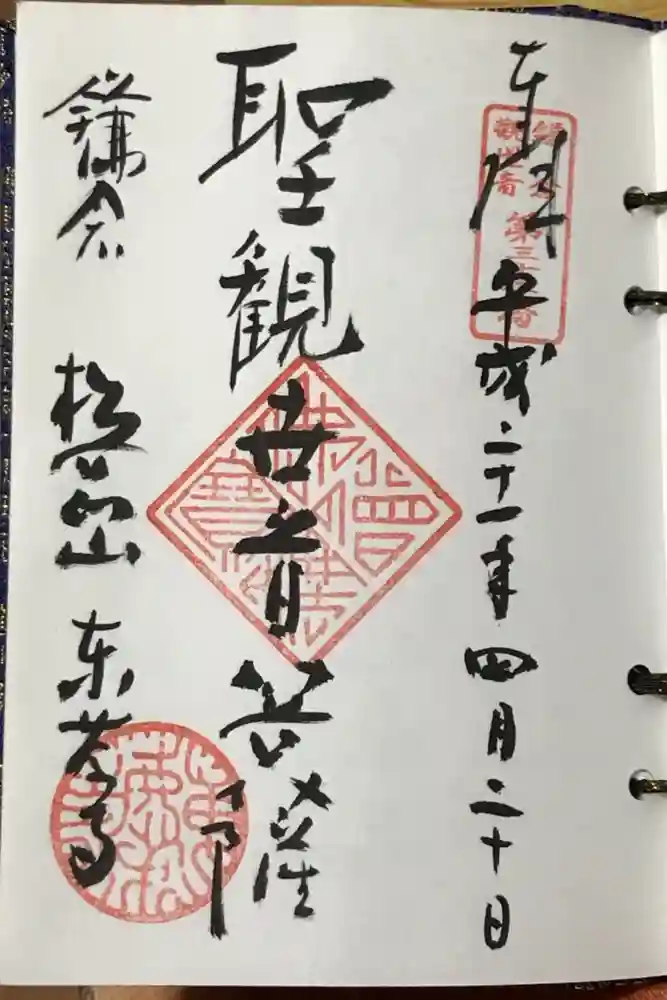 奉拝 平成二十一年四月二十日
鎌倉
觀世音
聖観世音菩薩
鎌倉 松岡山 東慶寺